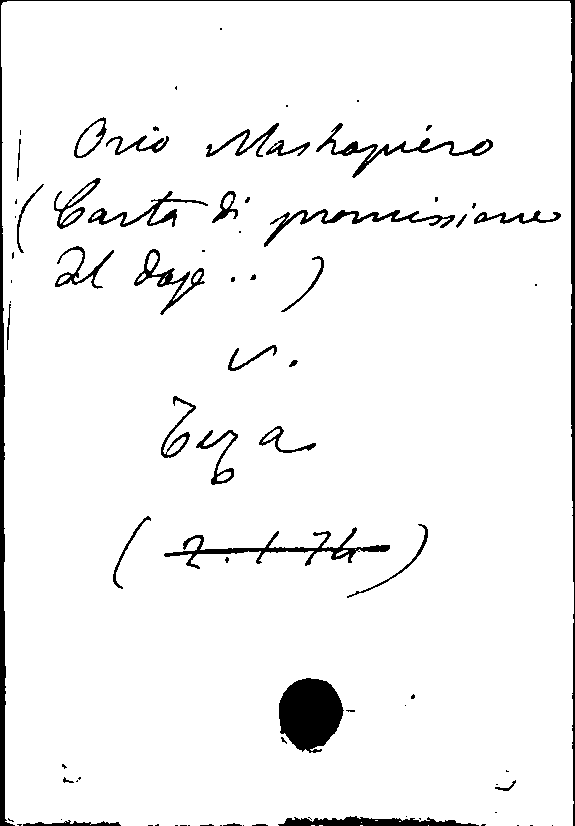 Orio Mastropiero
(Carta di promissione
del doge ..)
v.
Teza
(2.1.74)